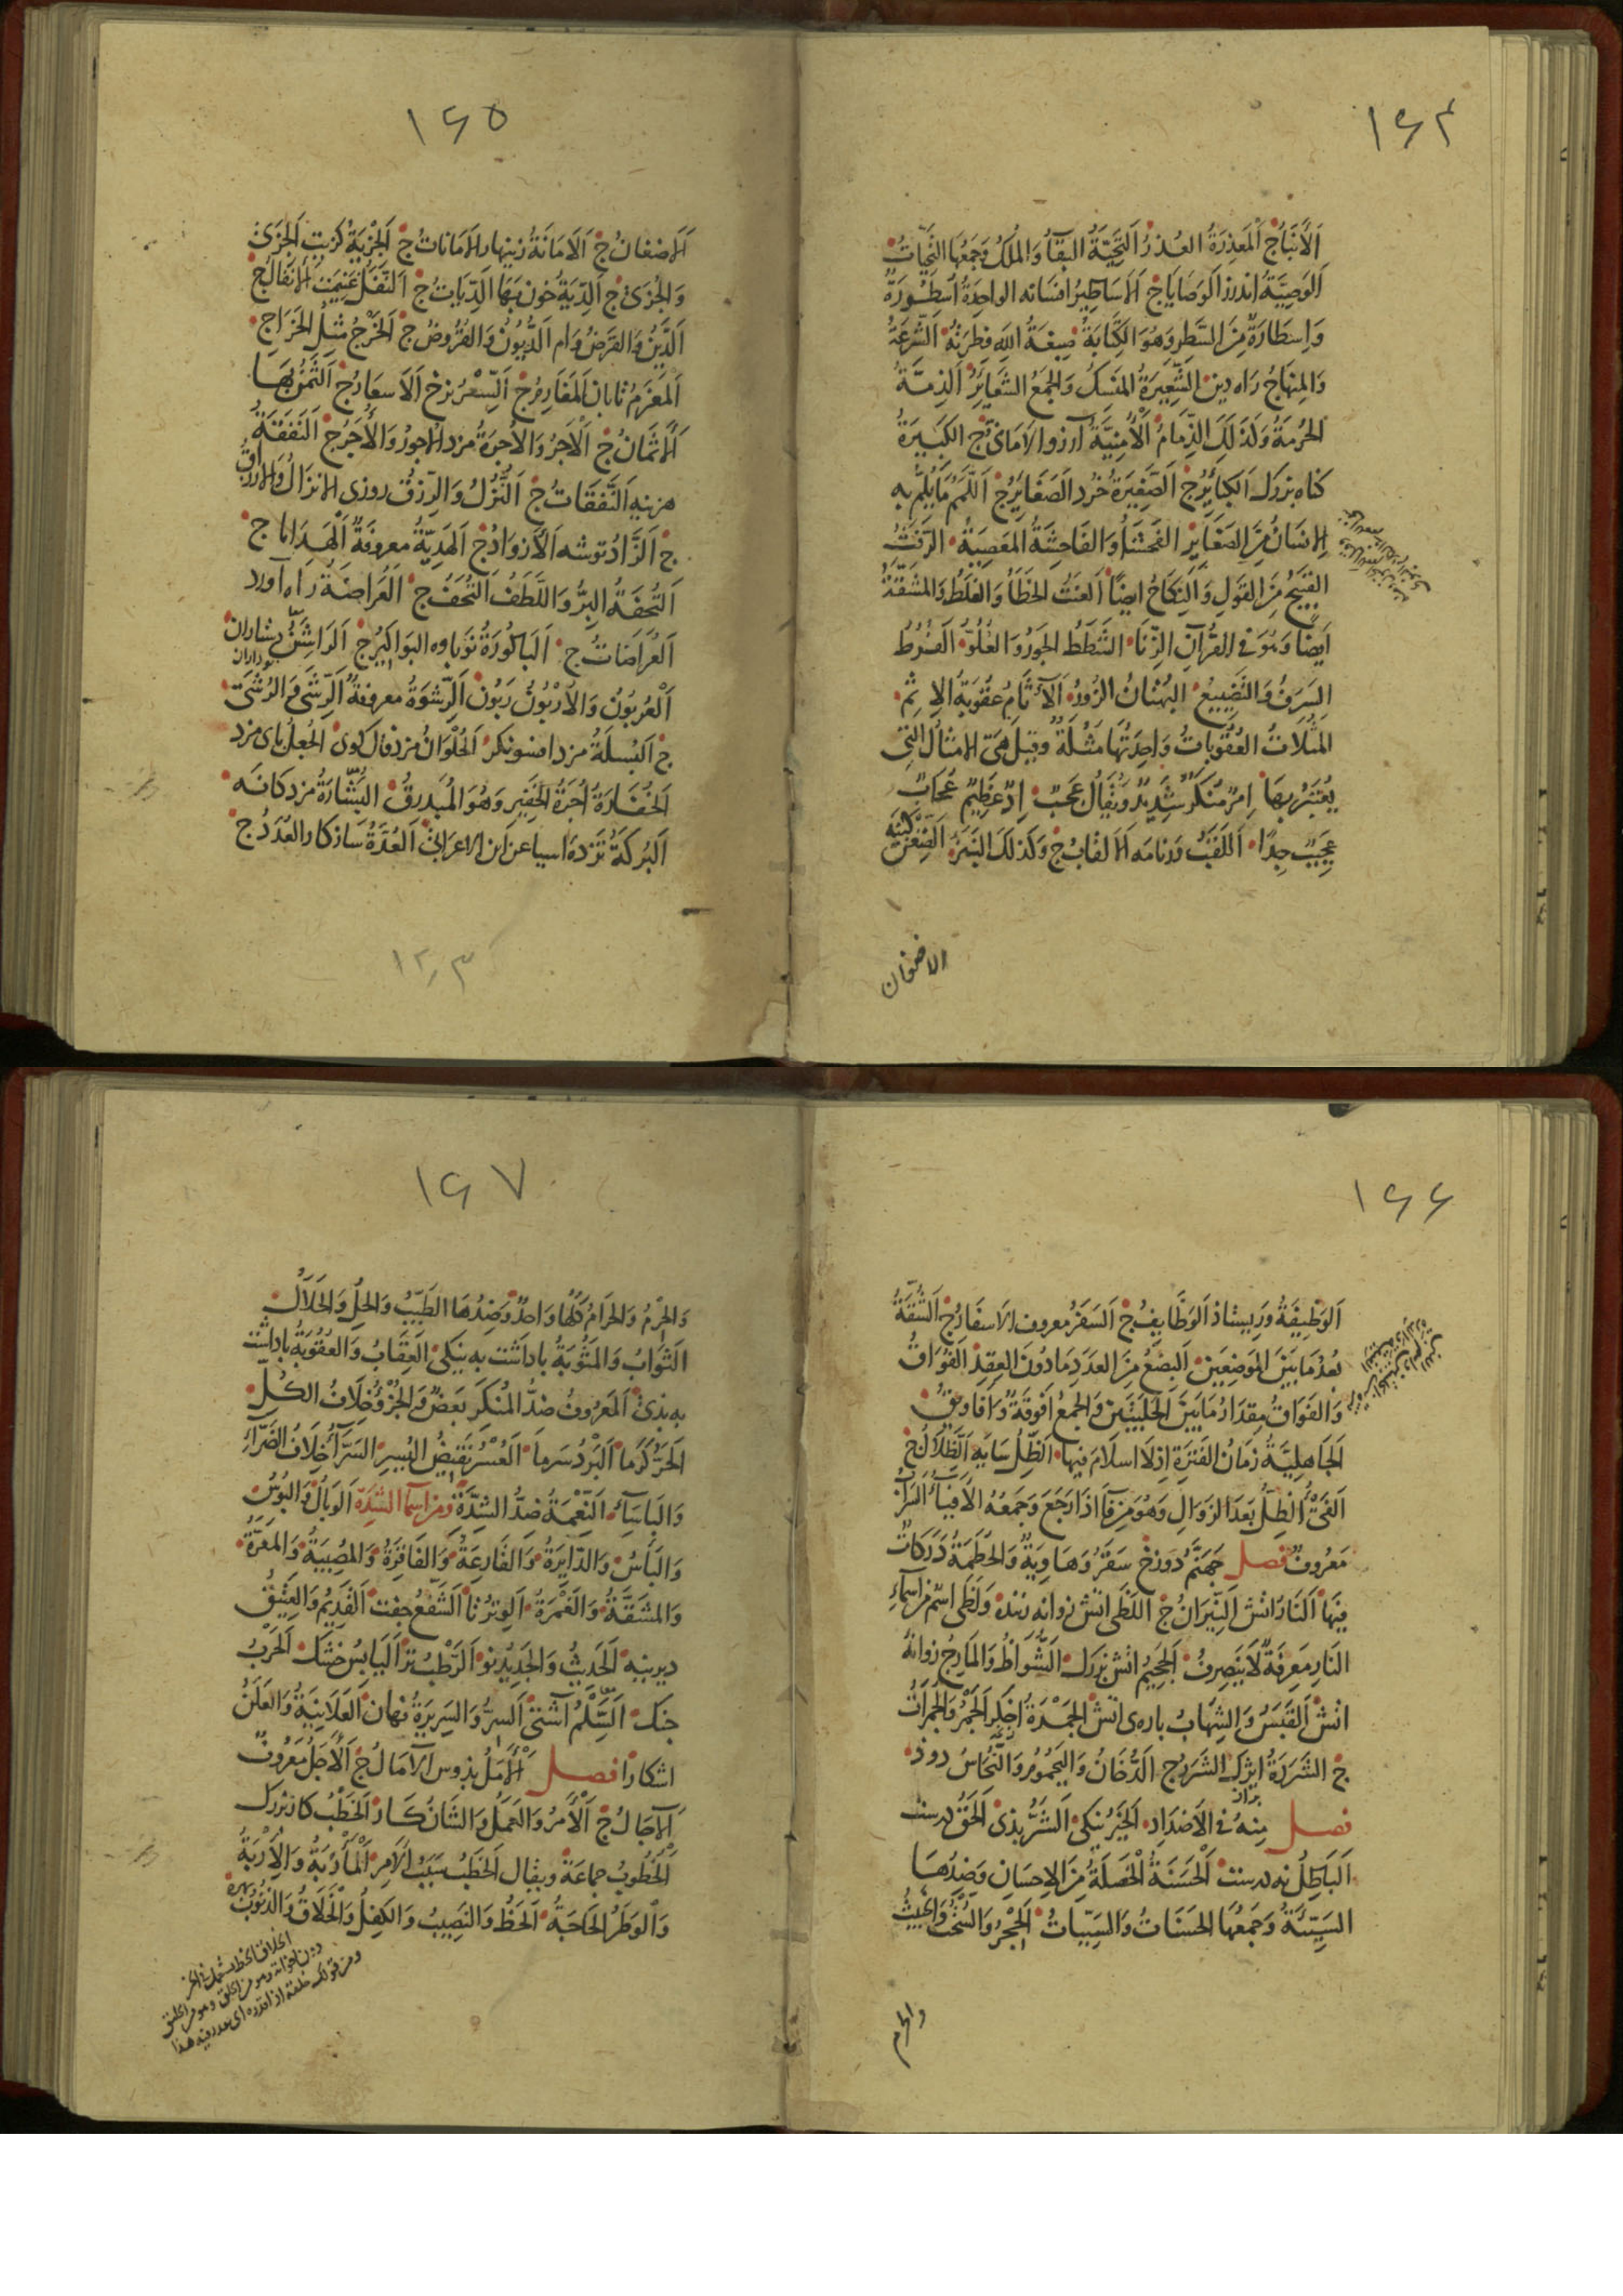 ۱۶۴
اَلْاَنْبَآءُ ج اَلْمَعْذِرَةُ العُذْرُ اَلتَّحِيَّةُ البَقَآءُ وَالمُلْكُ وَجَمْعُهَا التَّحِيَّاتُ
اَلْوَصِيَّةُ اندرز اَلْوَصَايَا ج اَلْاَسَاطِيرُ افسانه الواحِدَةُ اُسْطُورَةٌ
وَاِسْطَارَةٌ مِنَ السَّطْرِ وَهُوَ الكِتَابَةُ صِبْغَةُ اللهِ فِطْرَتُهُ الشِّرْعَةُ
وَالمِنْهَاجُ راه دين الشَّعِيرَةُ المَنْسَكُ وَالجَمْعُ الشَّعَايِرُ اَلذِمَّةُ
الحُرْمَةُ وَكَذَلِكَ الذِّمَامُ اَلْاُمْنِيَّةُ آرزو الاَمَانِىُّ ج الكَبِيرَةُ
كناه بزرك اَلكَبَائِرُ ج اَلصَّغِيرَةُ خُرد اَلصَّغَايِرُ ج اَللَّمَمُ مَا يُلِمُّ بِهِ
الاِنسَانُ مِنَ الصَّغَايِرِ الفَحْشَآءُ وَالفَاحِشَةُ المَعْصِيَةُ الرَّفَثُ
القَبِيحُ مِنَ القَوْلِ وَالنِكَاحُ ايضًا اَلعَنَتُ الخَطَاءُ وَالغَلَطُ وَالمَشَقَّةُ
اَيضًا وَهُوَ فِى القُرْآنِ الزِّنَا الشَّطَطُ الجَوْرُ وَالغُلُوُّ الفُرُطُ
السَرَفُ وَالتَّضْيِيعُ البُهْتَانُ الزُورُ اَلْآثَامُ عُقُوبَةُ الاِثمِ
المَثُلَاتُ العُقُوبَاتُ وَاحِدَتُهَا مَثُلَةٌ وَقِيلَ هِىَ الاَمْثَالُ الَّتِى
يُعْتَبَرُ بِهَا اِمْرٌ مُنْكَرٌ شَدِيدٌ وَيُقَالُ عَجَبٌ اِدٌّ عَظِيمٌ عُجَابٌ
عَجِيبٌ جِدًا اللَّقَبُ وَرنامه اَلْاَلْقَابُ ج وَكَذَلِكَ النَّبَزُ اَلضِّغْنُ كينه
الاضغان
۱۶۵
اَلاَضغَانُ ج اَلاَمَانَةُ زينهار اَلاَمَانَاتُ ج اَلجِزْيَةُ كزيت اَلجِزَىٰ
وَالجِزَىٰ ج اَلدِّيَةُ خون بَهَا الدِّيَاتُ ج اَلنَّفَلُ غنيمت اَلْاَنْفَالُ ج
اَلدَّيْنُ وَالقَرْضُ وام اَلدُّيُونُ وَالقُرُوضُ ج اَلخَرْجُ مِثْلُ الخَرَاجِ
اَلمَغْرَمُ تاوان اَلمَغَارِمُ ج اَلسِّعْرُ نرخ اَلاَسعَارُ ج اَلثَّمَنُ بَهَا
اَلْاَثْمَانُ ج اَلْاَجْرُ وَالاُجْرَةُ مزد الاُجورُ وَالْاُجَرُ ج اَلنَفَقَةُ
هزينه اَلنَّفَقَاتُ ج اَلنُّزُلُ وَالرِّزْقُ روزى اَلاَنزَالُ وَالاَرزَاقُ
ج اَلزَّادُ توشه اَلْاَزْوَادُ ج اَلهَدِيَّةُ معروفَةٌ اَلهَدَايَا ج
اَلتُّحْفَةُ البِرُّ وَاللَّطَفُ اَلتُّحَفُ ج اَلعُرَاضَةُ راه آورد
اَلعُرَاضَاتُ ج اَلبَاكُورَةُ نوباوه البَوَاكِيرُ ج اَلرَاشِنُ
اَلْعُرْبُونُ وَالْاُرْبُونُ رَبُون اَلرِّشْوَةُ معروفةٌ اَلرِّشَىٰ وَالرُشَىٰ
ج اَلبُسْلَةُ مزد افسونكر اَلحُلْوَانُ مزد فال كوى الجُعْلُ پاى مزد
اَلخُفَارَةُ اُجْرَةُ الخَفِيرِ وَهُوَ المُبَذْرِقُ البُشَارَةُ مزدكانه
اَلبُركَةُ مزد آسيا عن ابن الاعرابىّ اَلعُدَّةُ ساز كار العُدَدُ ج
۱۲٫۳
۱۶۶
اَلوَظِيفَةُ اَلوَظَايِفُ ج اَلسَفَرُ معروف الاَسفَارُ ج اَلشُّقَّةُ
بُعْدُ مَا بَيْنَ المَوْضِعَيْنِ اَلبِضْعُ مِنَ العَدَدِ مَا دُونَ العِقْدِ اَلفُوَاقُ
وَالفَوَاقُ مِقْدَارُ مَا بَيْنَ الحَلْبَتَيْنِ وَالجَمْعُ اَفْوِقَةٌ وَاَفَاوِيقُ
اَلجَاهِلِيَّةُ زَمَانُ الفَتْرَةِ اِذ لَا اِسلَامَ فِيهَا اَلظِّلُّ سايه اَلظِّلَالُ ج
اَلفَىْءُ الظِّلُّ بَعْدَ الزَّوَالِ وَهُوَ مِنْ فَاءَ اِذَا رَجَعَ وَجَمْعُهُ الْاَفْيَآءُ السَرَابُ
مَعْرُوفٌ فصل جَهَنَّمُ دوزخ سَقَرُ وَهَاوِيَةٌ وَالحُطَمَةُ دَرَكَاتٌ
مِنْهَا اَلنَّارُ آتش اَلنِّيرَانُ ج اَللَّظَىٰ آتش زوانه زننده وَلَظَىٰ اِسْمٌ مِنْ اَسْمَآءِ
النَّارِ مَعْرِفَةٌ لَا يَنْصَرِفُ اَلجَحِيمُ آتش بزرك اَلشُّوَاظُ وَالمَارِجُ زوانه
آتش اَلقَبَسُ وَالشِهَابُ پاره‌ى آتش اَلجَمْرَةُ اخكر اَلجَمْرُ وَالجَمَرَاتُ
ج الشَرَرَةُ ايژك الشَرَرُ ج اَلدُّخَانُ وَاليَحْمُومُ وَالنُّحَاسُ دود
فصل مِنْهُ فِى الاَضْدَادِ اَلخَيْرُ نيكى اَلشَرُّ بذى اَلحَقُّ درست
اَلبَاطِلُ نه درست اَلْحَسَنَةُ اَلْخَصْلَةُ مِنَ الاِحسَانِ وَضِدُّهَا
السَيِّئَةُ وَجَمْعُهَا الحَسَنَاتُ وَالسَيِّئَاتُ اَلْحِجْرُ وَالسُّحْتُ وَالخَبِيثُ
والحرم
۱۶۷
وَالحِرْمُ وَالحَرَامُ كُلُّهَا وَاحِدٌ وَضِدُّهَا الطَيِّبُ وَالحِلُّ وَالحَلَالُ
الثَوَابُ وَالمَثُوبَةُ پاداشت به نيكى العِقَابُ وَالعُقُوبَةُ پاداشت
به بذى اَلمَعْرُوفُ ضِدُّ المُنْكَرِ بَعْضٌ وَالجُزْؤُ خِلَافُ الكُلِّ
اَلحَرُّ كَرما اَلبَرْدُ سَرما اَلعُسْرُ نَقِيضُ اليُسرِ السَرَّآءُ خِلَافُ الضَرَّآءِ
وَالبَاسَآءِ اَلنِّعْمَةُ ضِدُّ الشِدَّةِ ومن اسمآء الشدّة اَلوَبَالُ وَالبُوسُ
وَالبَأسُ وَالدَّايِرَةُ وَالقَارِعَةُ وَالفَاقِرَةُ وَالمُصِيبَةُ وَالمَعَرَّةُ
وَالمَشَقَّةُ وَالغَمْرَةُ اَلوِتْرُ تا اَلشَّفْعُ جفت اَلقَدِيمُ وَالعَتِيقُ
ديرينه اَلحَدِيثُ وَالجَدِيدُ نو اَلرَّطْبُ تر اَليَابِسُ خشك اَلحَرْبُ
جنك اَلسِّلْمُ آشتى اَلسِرُّ وَالسَرِيرَةُ نهان اَلعَلَانِيَةُ وَالعَلَنُ
اشكارا فصل اَلْاَمَلُ بذوس اَلآمَالُ ج اَلْاَجَلُ مَعْرُوفٌ
اَلآجَالُ ج اَلْاَمْرُ وَالعَمَلُ وَالشَانُ كار اَلخَطْبُ كار بزرك
اَلْخُطُوبُ جماعَة ويقال اَلخَطْبُ سَبَبُ الْاَمْرِ اَلْمَأْرُبَةُ وَالْاِرْبَةُ
وَالوَطَرُ الحَاجَةُ اَلحَظُّ وَالنَصِيبُ وَالكِفْلُ وَالْخَلَاقُ وَالذَّنُوبُ بهره